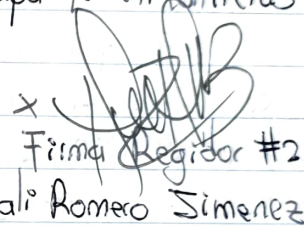 x
Firma Regidor #2
ali Romero Simenez